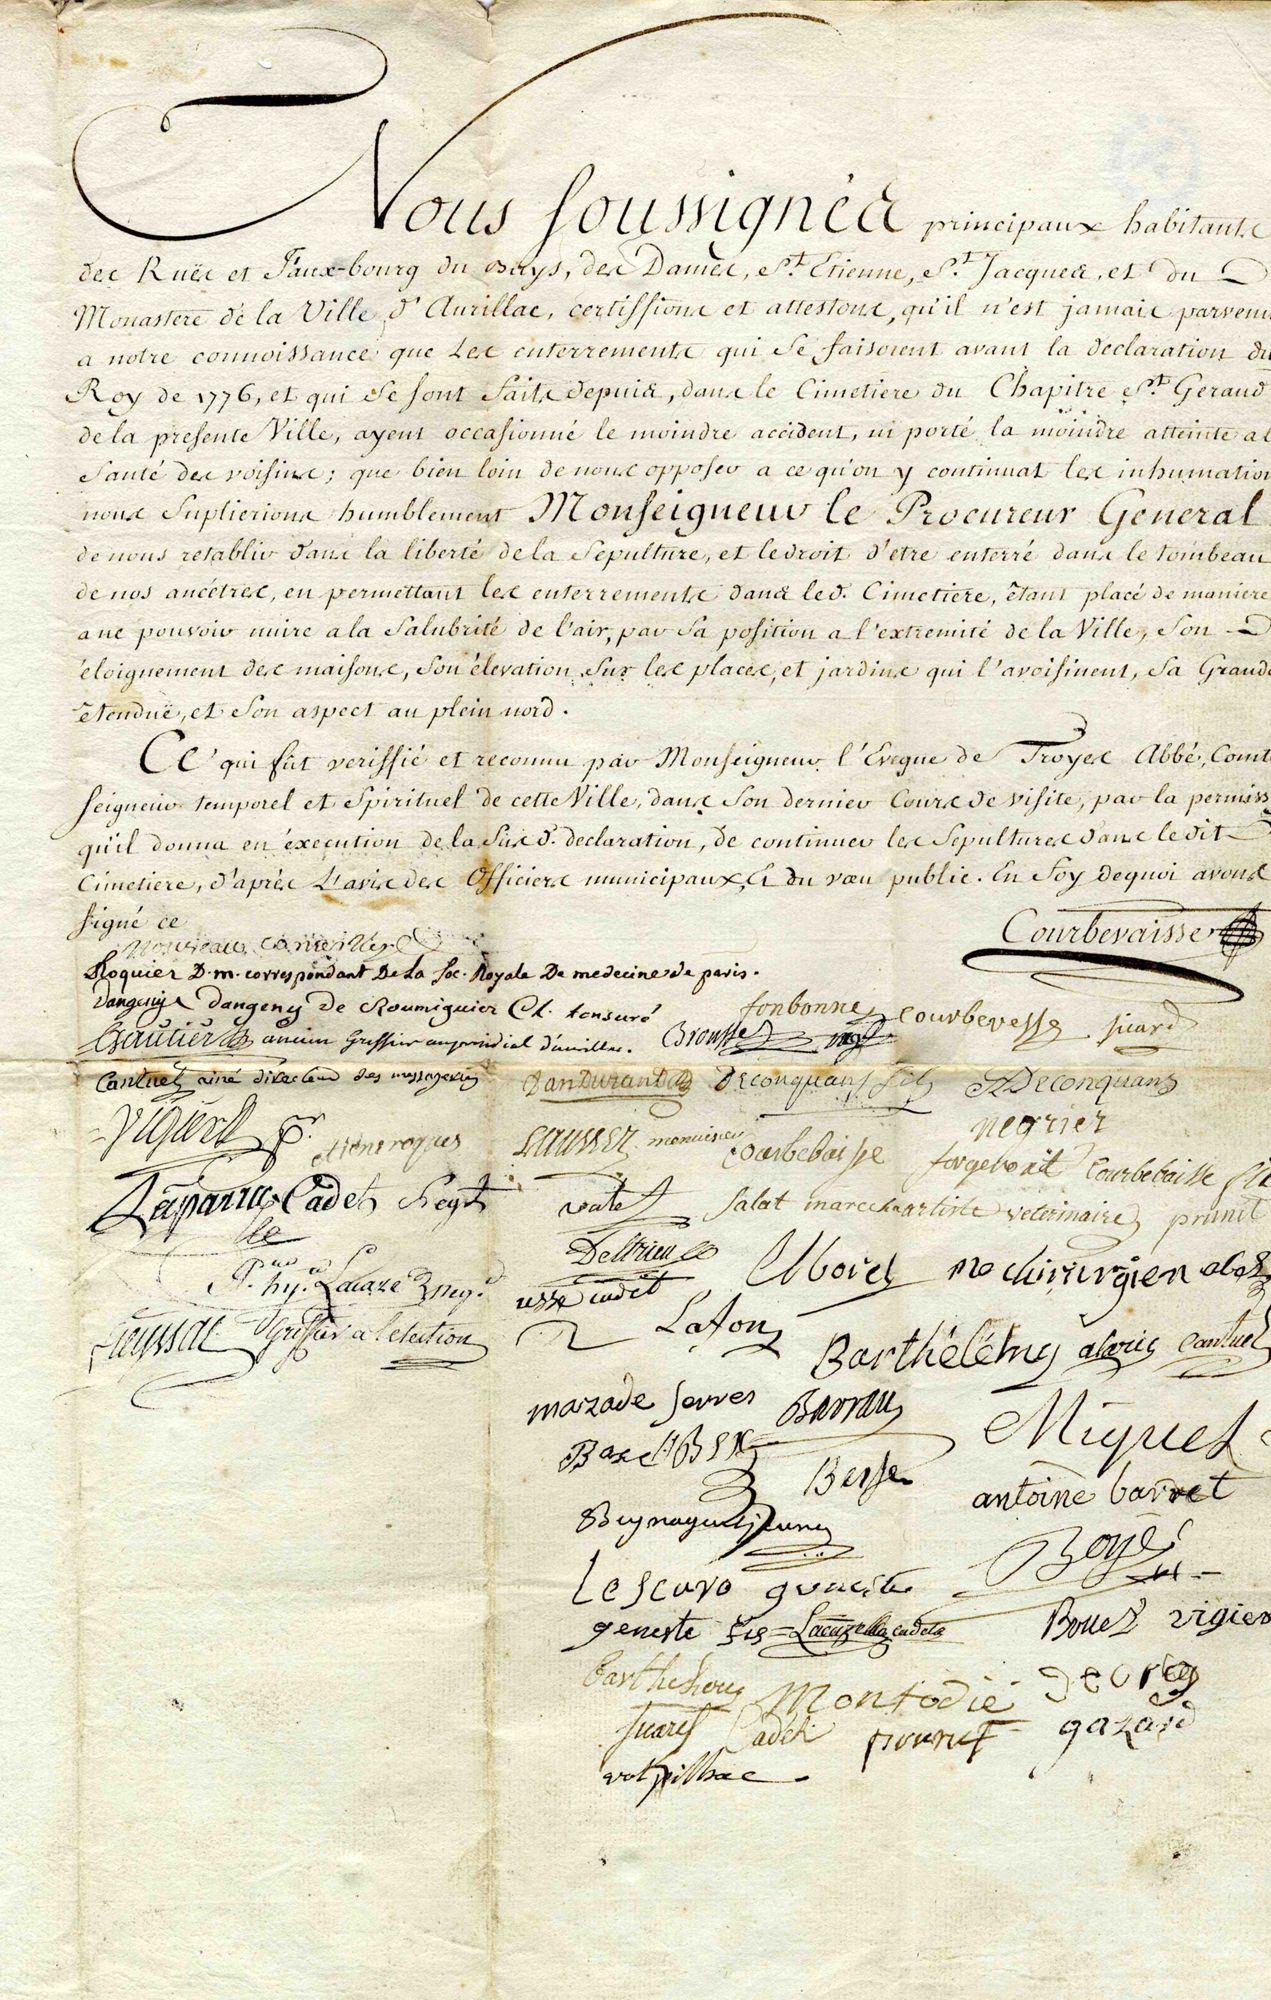 Nous soussignés principaux habitants
des Ruës et Faux-bourg du Buys, des Dames, St. Etienne, St. Jacques, et du
Monastere de la Ville d'Aurillac, certiffions et attestons, qu'il n'est jamais parvenu
a notre connoissance que Les enterrements qui se faisoient avant la declaration du
Roy de 1776, et qui se sont faits depuis, dans le Cimetiere du Chapitre St. Geraud
de la presente Ville, ayent occasionné le moindre accident, ni porté la moindre atteinte a l
santé des voisins; que bien loin de nous opposer a ce qu'on y continuat les inhumation
nous suplierions humblement Monseigneur le Procureur General
de nous retablir dans la liberté de la sepulture, et le droit d'etre enterré dans le tombeau
de nos ancétres, en permettant les enterrements dans led. Cimetiere, étant placé de maniere
a ne pouvoir nuire a la salubrité de l'air, par sa position a l'extremité de la Ville, son
éloignement des maisons, son élevation sur les places, et jardins qui l'avoisinent, sa Grande
étenduë, et son aspect au plein nord.
Ce qui fût veriffié et reconnu par Monseigneur l'Eveque de Troyes Abbé, Comte
seigneur temporel et spirituel de cette Ville, dans son dernier Cours de visite, par la permiss
qu'il donna en éxecution de la susd. declaration, de continuer les sepultures dans le dit
Cimetiere, d'après L'avis des Officiers municipaux, & du vœu public. En foy dequoi avons
signé ce
Courbevaisse
Roquier D. m. correspondant De La Soc. Royale De medecine de paris.
Dangeny de Roumiguier Cl. tonsuré
fonbonne courbevesse sicard
Gautier ancien Greffier
Brousse
Cantuel ainé directeur des messageries
Danduranda Deconquans fils Deconquans
negrier
Vigier
etiene roques
Lausser menuisier courbebaisse courbebaisse
Laparra Cadet Negt
salat marechal artiste veterinaire prunet
Deltrieu
Lacaze neg.
cadet
aborel me chirurgien
Leyssac Greffier a l'election
Lafon
Barthélémy cantuel
mazade serres Barrau
Miquel
Besse
antoine barret
Boyé
Lescuro
geneste fils Lacazella cadet
Bouet vigier
Montodié
Cadet
gazard
volpilhac